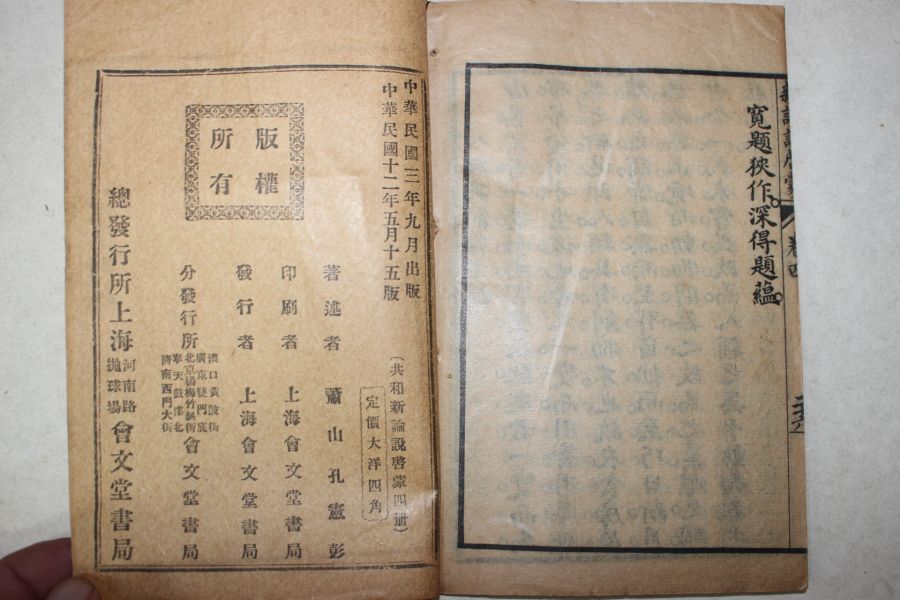 卷四
寬題狹作。深得題蘊。
中華民國三年九月出版
中華民國十二年五月十五版
(共和新論說啓蒙四册)
定價大洋四角
版權
所有
著述者 蕭山孔憲彭
印刷者 上海會文堂書局
發行者 上海會文堂書局
分發行所
漢口黃陂街
廣東雙門底
北京楊梅竹斜街
奉天鼓樓北
濟南西門大街
會文堂書局
總發行所上海
河南路
拋球場
會文堂書局